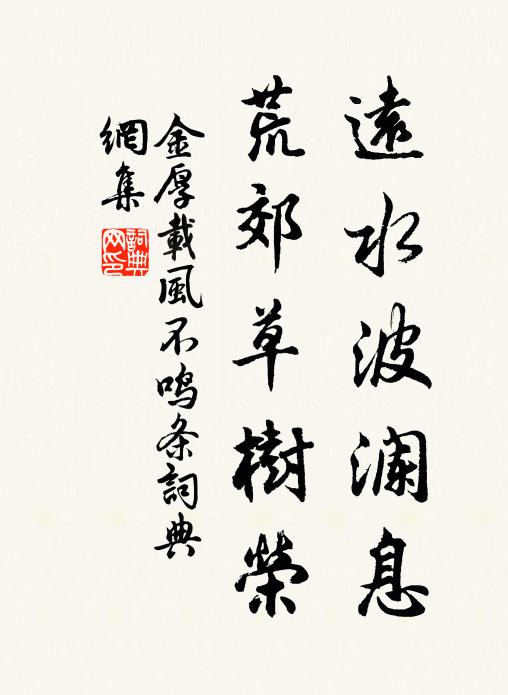 遠水波澜息
荒郊草樹榮
金厚載風不鸣条詞典
網集
詞典
网印